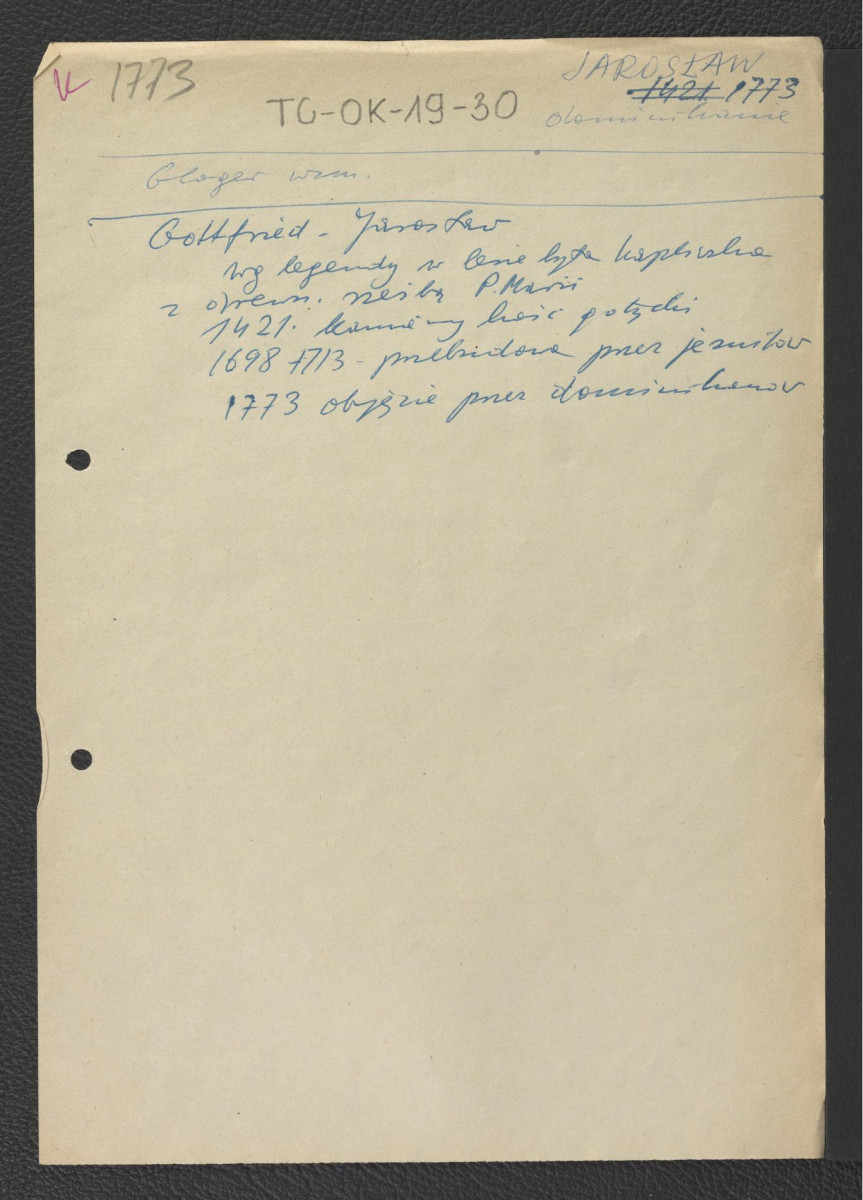 K 1773
JAROSŁAW
TG-OK-19-30
1421. 1773
dominikanie
Gloger wzm.
Gottfried - Jarosław
wg legendy w lesie była kapliczka
z drewn. rzeźbą P. Marii
1421. kamienny kość gotycki
1698 1713 - przebudowa przez jezuitów
1773 objęcie przez dominikanów